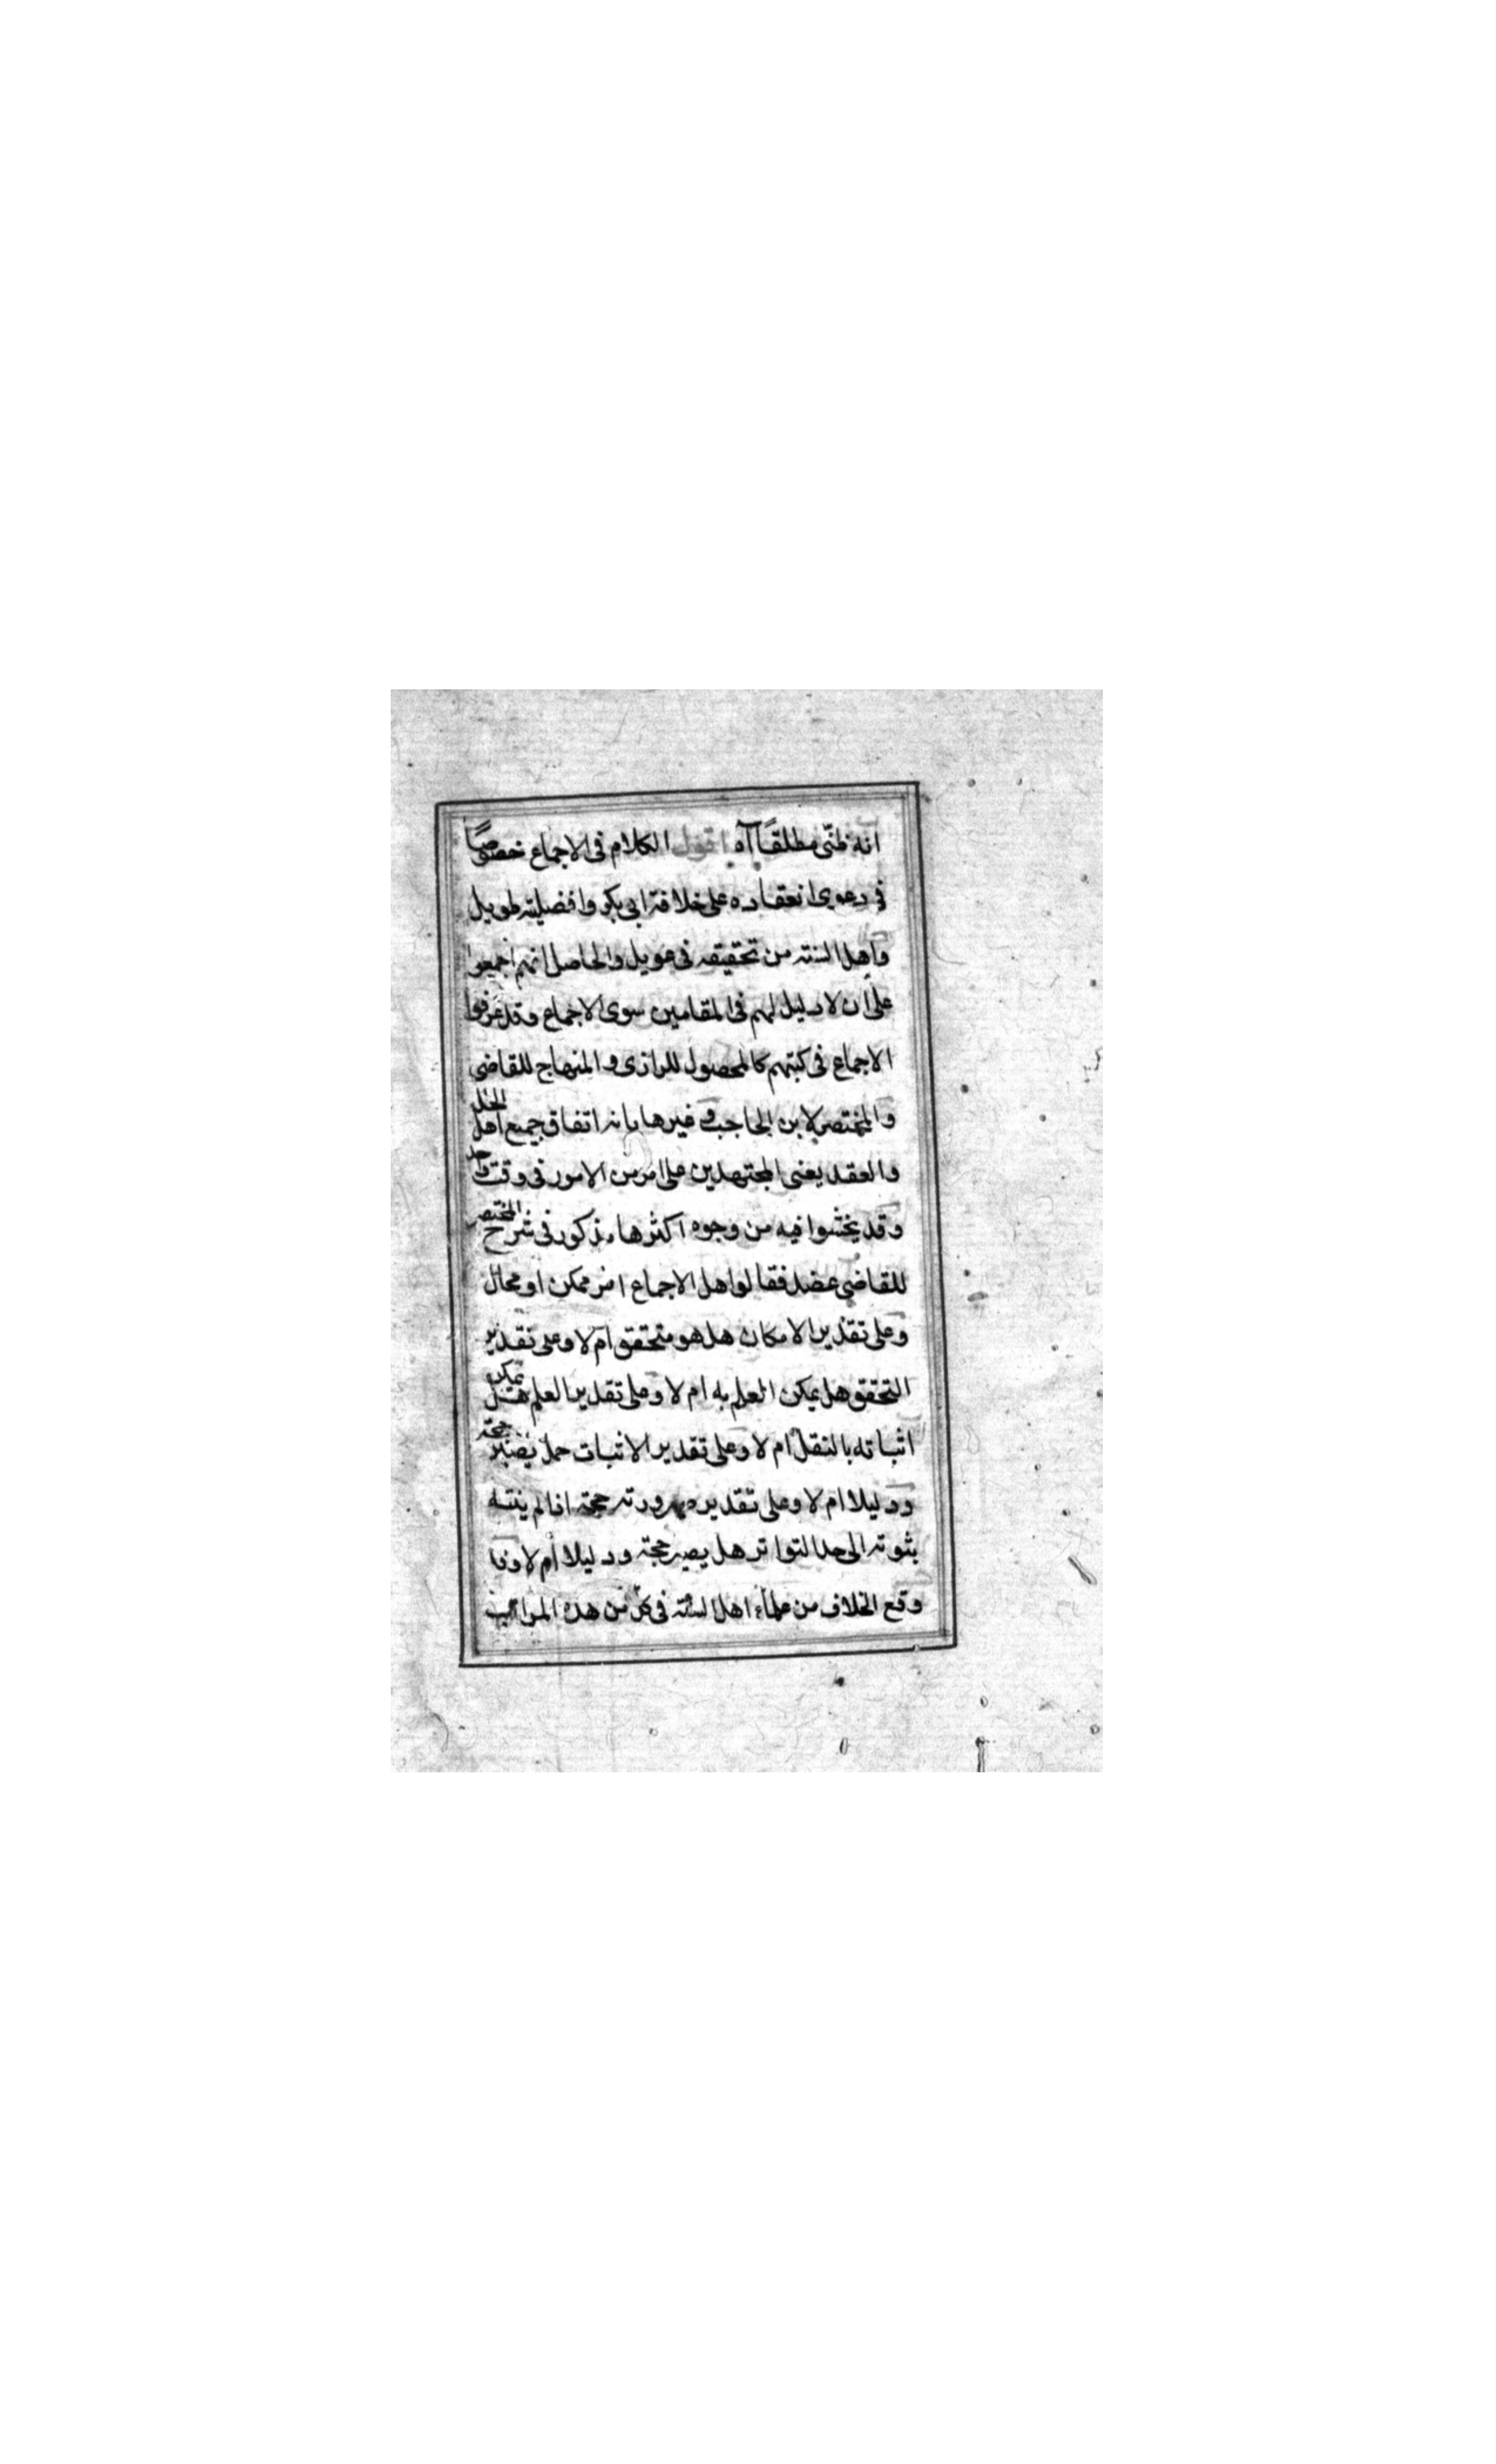 انه ظنّى مطلقًا آه اقول الكلام فى الاجماع خصوصًا
فى دعوى انعقاده على خلافة ابى بكر وافضليته طويل
واهل السنته من تحقيقه فى عويل والحاصل انهم اجمعوا
على ان لا دليل لهم فى المقامين سوى الاجماع وقد عرفوا
الاجماع فى كتبهم كالمحصول للرازى والمنهاج للقاضى
والمختصر لابن الحاجب وغيرها بانه اتفاق جميع اهل الحل
والعقد يعنى المجتهدين على امر من الامور فى وقت واحد
وقد بحثوا فيه من وجوه اكثرها مذكور فى شرح المختصر
للقاضى عضد فقالوا هل الاجماع امر ممكن او محال
وعلى تقدير الامكان هل هو متحقق ام لا وعلى تقدير
التحقق هل يمكن العلم به ام لا وعلى تقدير العلم هل يمكن
اثباته بالنقل ام لا وعلى تقدير الاثبات هل يصير حجة
ودليلا ام لا وعلى تقدير صيرورته حجة اذا لم ينته
ثبوته الى حد التواتر هل يصير حجة ودليلا ام لا وقد
وقع الخلاف من علماء اهل السنّة فى كل من هذه المراتب